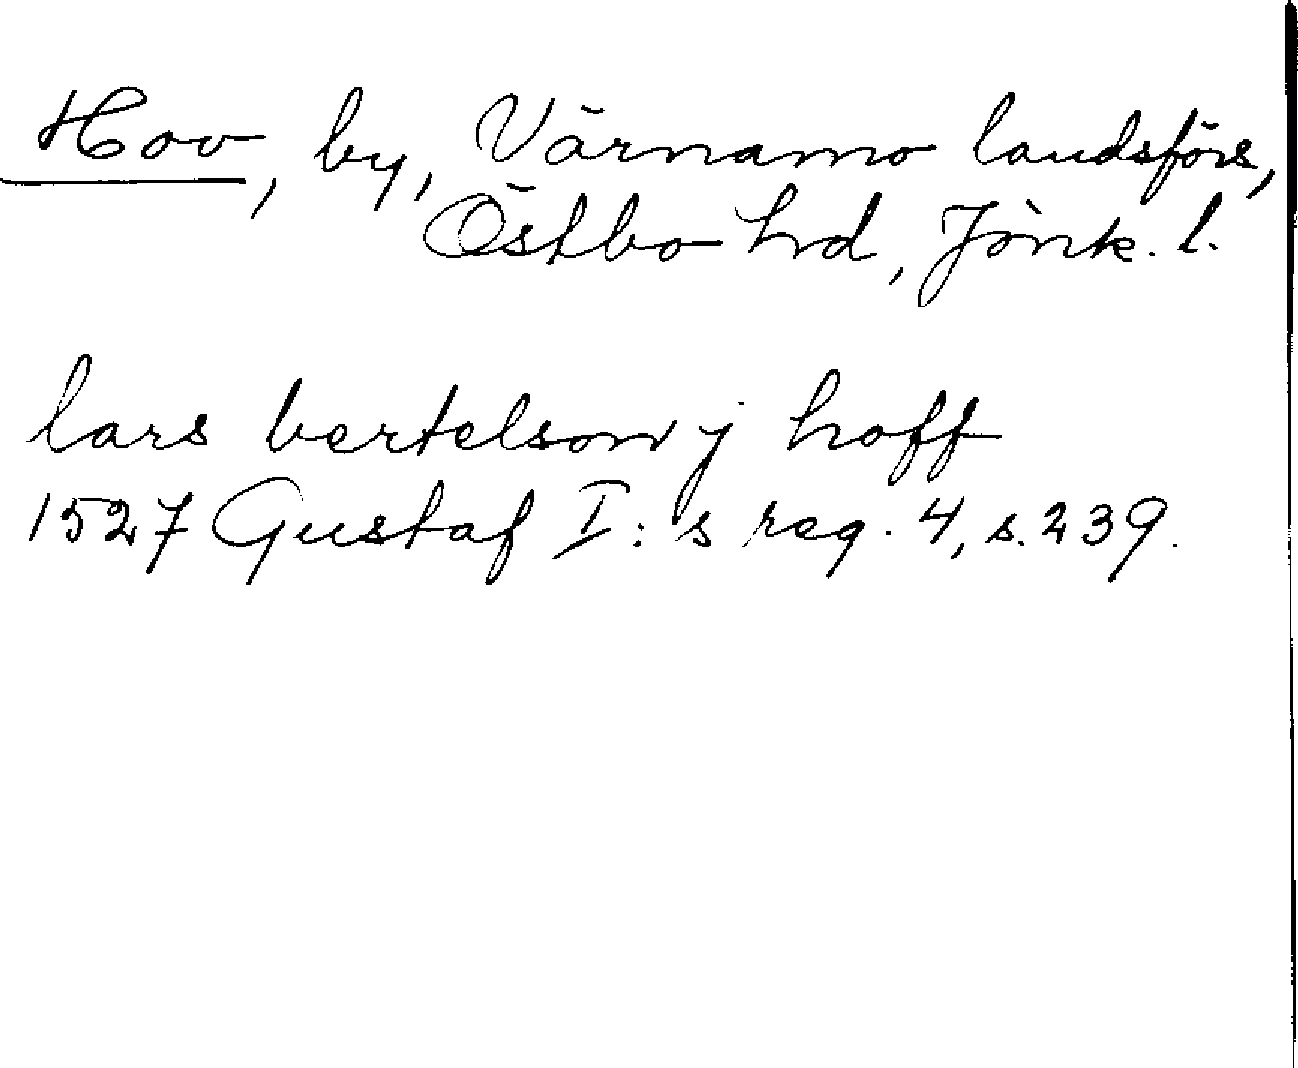 Hov, by, Värnamo landsförs,
Östbo hd, Jönk. l.
lars bertelson j hoff
1527 Gustaf I:s reg. 4, s. 239.